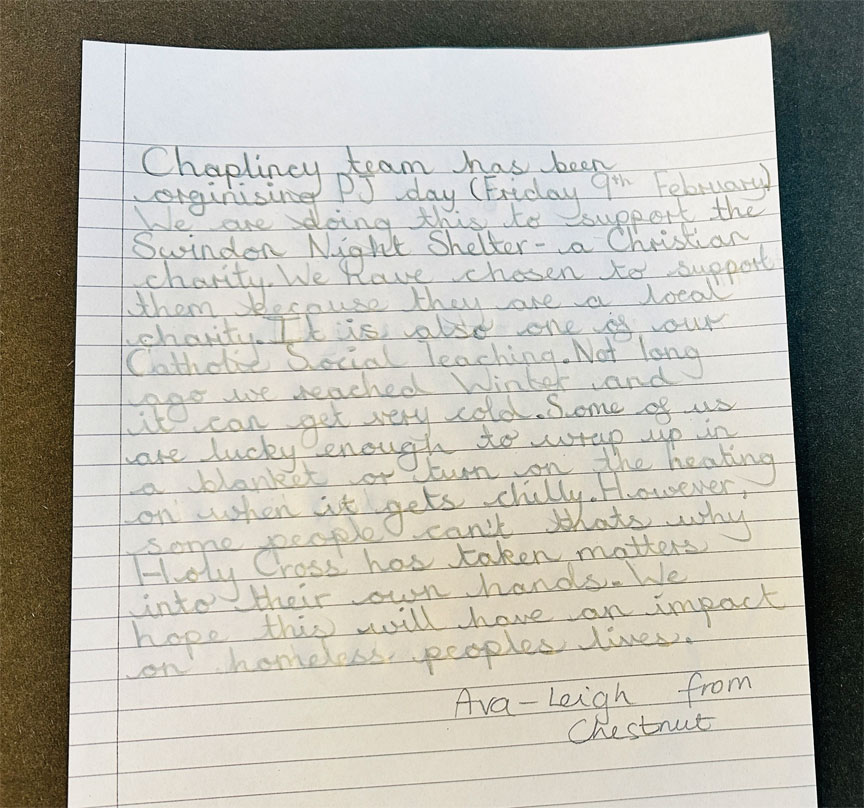 Chaplincy team has been
orginising PJ day (Friday 9th February)
We are doing this to support the
Swindon Night Shelter- a Christian
charity. We have chosen to support
them because they are a local
charity. It is also one of our
Catholic Social Teaching. Not long
ago we reached Winter and
it can get very cold. Some of us
are lucky enough to wrap up in
a blanket or turn on the heating
on when it gets chilly. However,
some people can't thats why
Holy Cross has taken matters
into their own hands. We
hope this will have an impact
on homeless peoples lives.
Ava-Leigh from
Chestnut